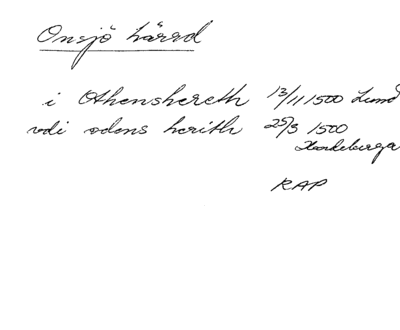 Onsjö härad
i Othenshereth 13/11 1500 Lund
vdi odens herith 25/3 1500
RAP